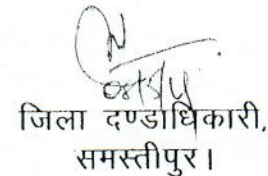 जिला दण्डाधिकारी,
समस्तीपुर।